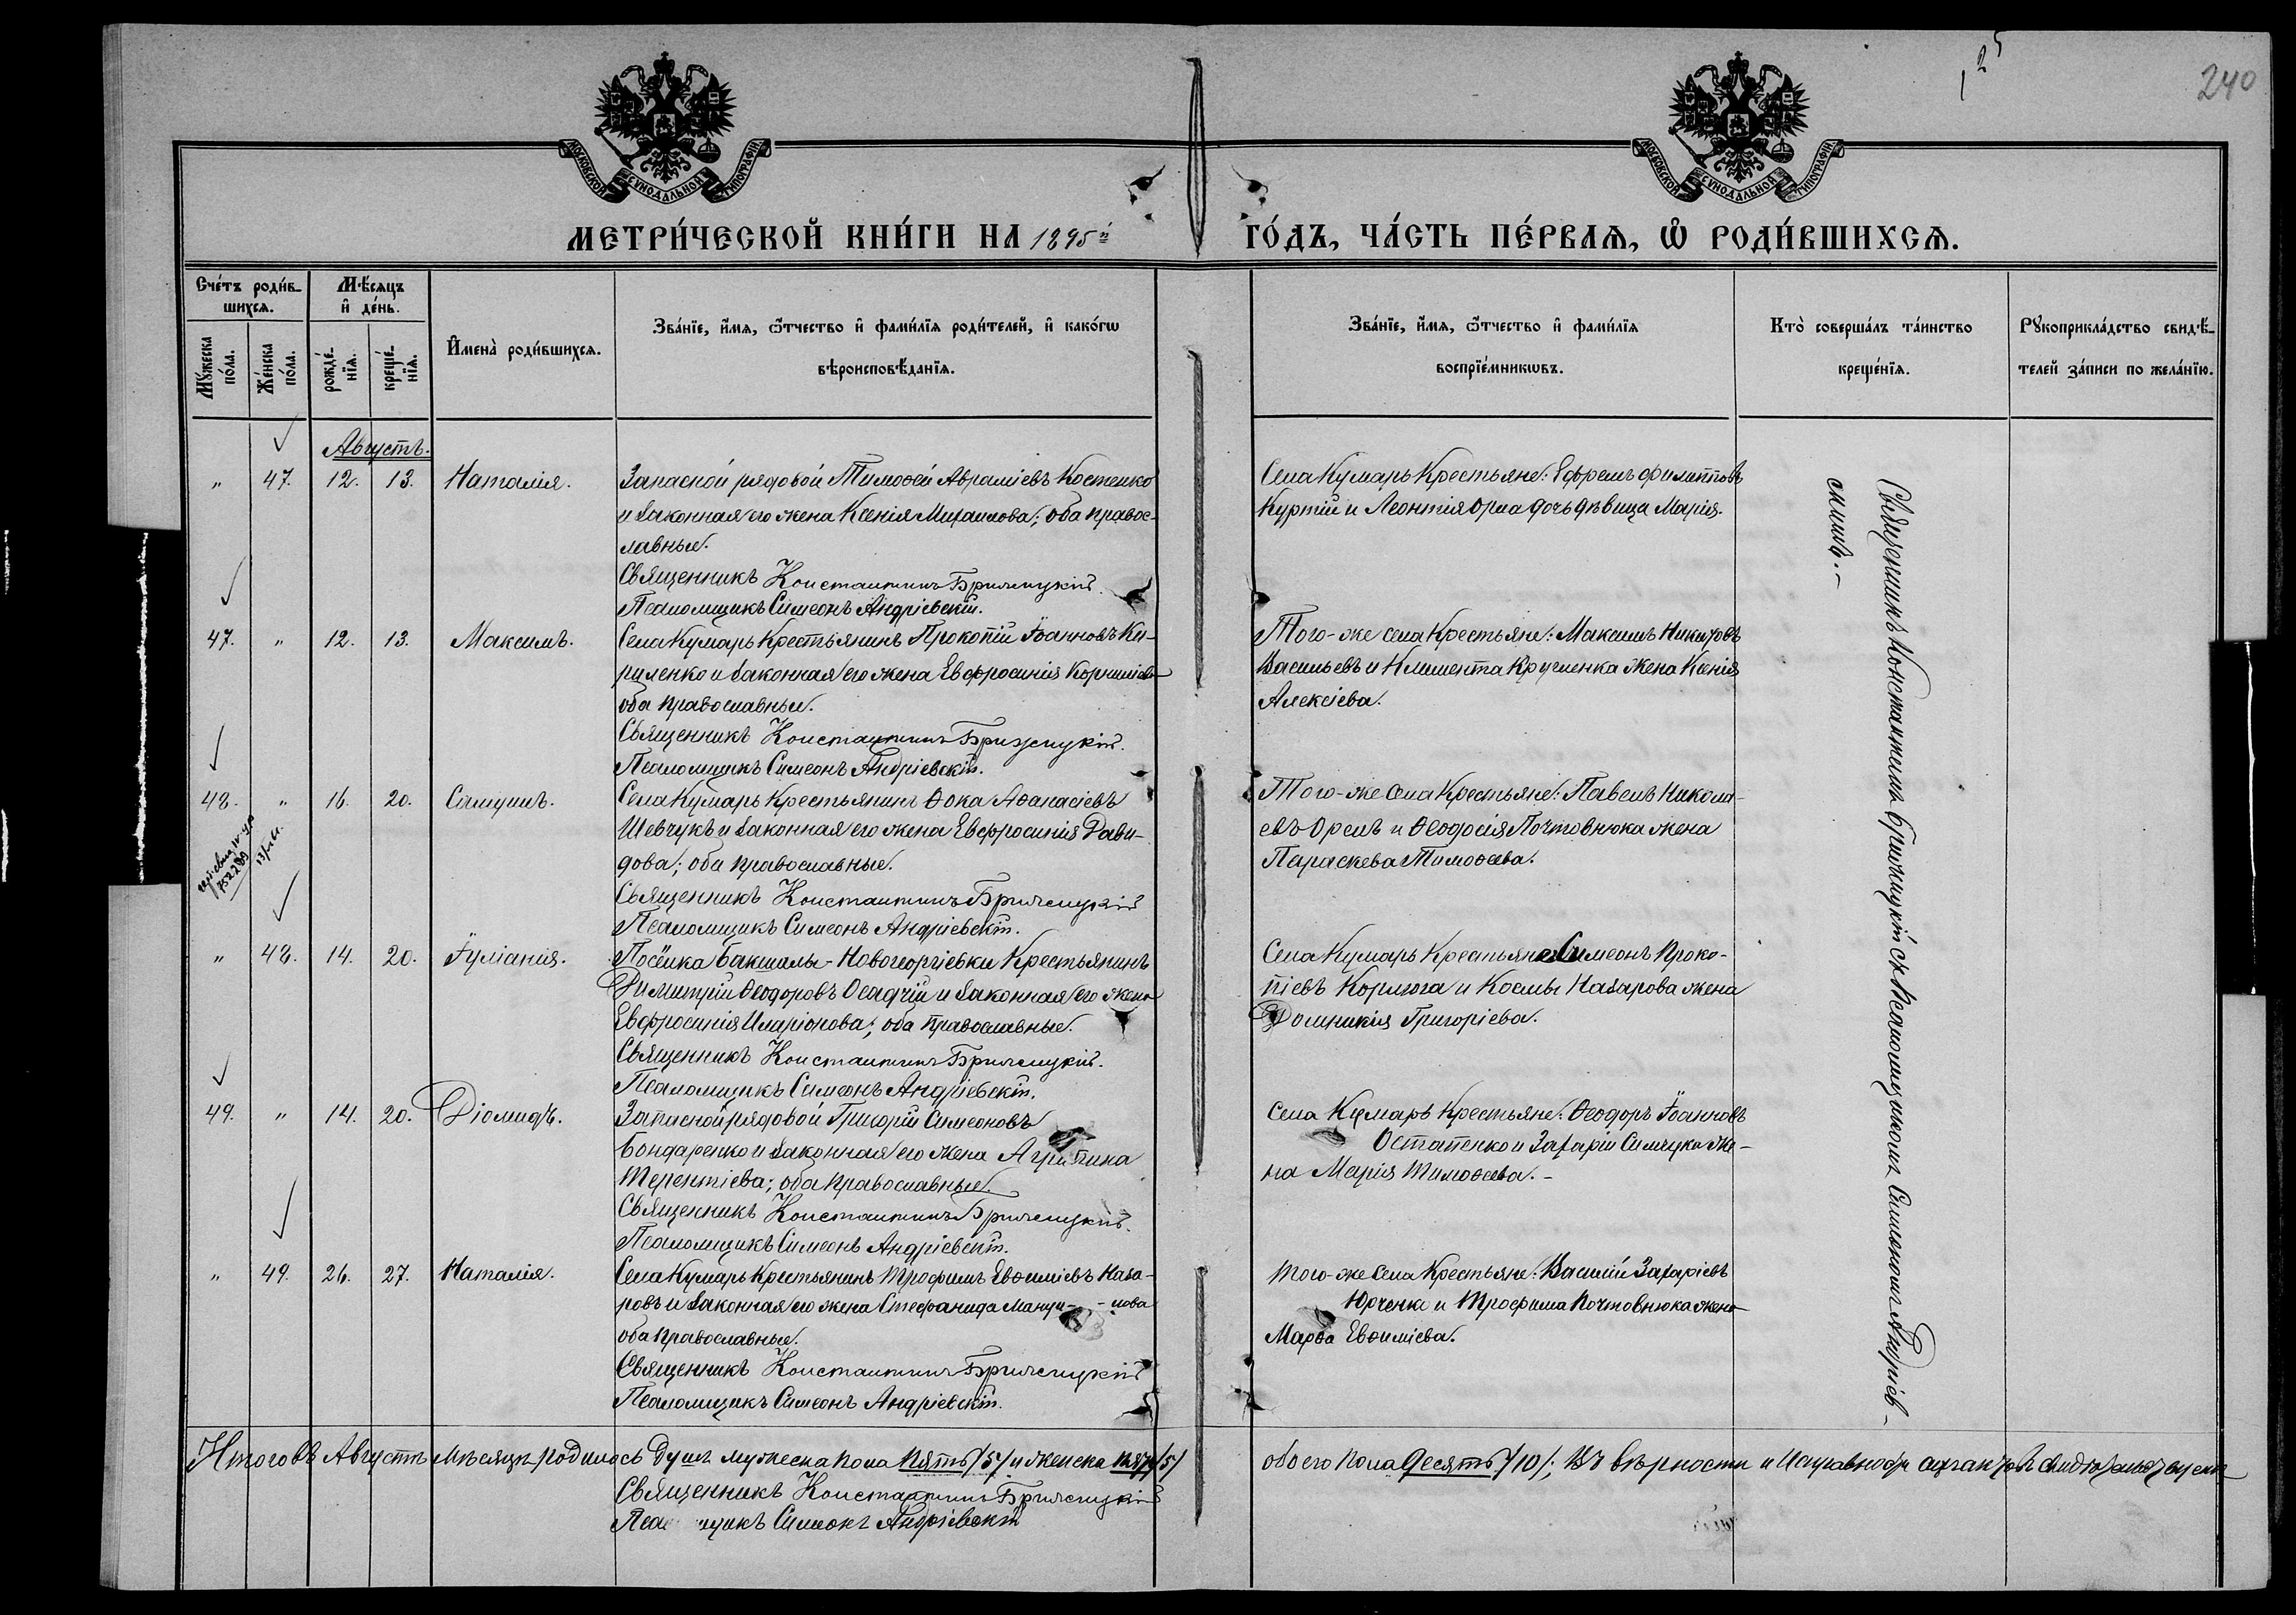 125
240
МОСКОВСКОЙ СУНОДАЛЬНОЙ ТИПОГРАФІИ
МОСКОВСКОЙ СУНОДАЛЬНОЙ ТИПОГРАФІИ
МЕТРИ́ЧЕСКОЙ КНИ́ГИ НА 1895й ГО́ДЪ, ЧА́СТЬ ПЕ́РВАѦ, Ѡ РОДИ́ВШИХСѦ.
Сче́тъ роди́в-
шихсѧ.
Мѣ́сяцъ
и҆ де́нь.
Мꙋ́жеска
по́ла.
Же́нска
по́ла.
рожде́-
нїѧ.
креще́-
нїѧ.
И҆мена̀ роди́вшихсѧ.
Зва́нїе, и҆́мѧ, ѻ҆́тчество и҆ фами́лїѧ роди́телей, и҆ како́гѡ
вѣроисповѣ́данїѧ.
Зва́нїе, и҆́мѧ, ѻ҆́тчество и҆ фами́лїѧ
воспрїе́мникѡвъ.
Кто̀ соверша́лъ та́инство
креще́нїѧ.
Рꙋкоприкла́дство свидѣ́-
телей за́писи по жела́нїю.
Августъ.
„ 47. 12. 13. Наталія. Запасной рядовой Тимоѳей Авраміевъ Костенко
и законная его жена Ксенія Михаилова; оба правос-
лавные.
Священникъ Константинъ Брижицкій.
Псаломщикъ Симеонъ Андріевскій.
Села Кумарь Крестьяне: Ефремъ Филипповъ
Куртій и Леонтія Орла дочь дѣвица Марія.
47. „ 12. 13. Максимъ. Села Кумарь Крестьянинъ Прокопій Іоанновъ Ки-
риленко и законная его жена Евфросинія Корниліева
оба православные.
Священникъ Константинъ Брижицкій.
Псаломщикъ Симеонъ Андріевскій.
Того-же села Крестьяне: Максимъ Никитовъ
Васильевъ и Климента Кругленка жена Ксенія
Алексіева.
48. „ 16. 20. Самуилъ. Села Кумарь Крестьянинъ Ѳока Аѳанасіевъ
Шевчукъ и законная его жена Евфросинія Дави-
дова; оба православные.
Священникъ Константинъ Брижицкій
Псаломщикъ Симеонъ Андріевскій.
Того-же Села Крестьяне: Павелъ Никола-
евъ Орелъ и Ѳеодосія Почтовнюка жена
Параскева Тимоѳеева.
„ 48. 14. 20. Іуліанія. Посёлка Бакшалы-Новогеоргіевки Крестьянинъ
Димитрій Ѳеодоровъ Осадчій и законная его жена
Евфросинія Иларіонова; оба православные.
Священникъ Константинъ Брижицкій.
Псаломщикъ Симеонъ Андріевскій.
Села Кумарь Крестьяне Симеонъ Проко-
піевъ Корлюга и Космы Назарова жена
Домникія Григоріева.
49. „ 14. 20. Діомидъ. Запасной рядовой Григорій Симеоновъ
Бондаренко и законная его жена Агрипина
Терентіева; оба православные.
Священникъ Константинъ Брижицкій.
Псаломщикъ Симеонъ Андріевскій.
Села Кумарь Крестьяне: Ѳеодоръ Іоанновъ
Остапенко и Захарія Симчука же-
на Марія Тимоѳеева.-
„ 49. 26. 27. Наталія. Села Кумарь Крестьянинъ Трофимъ Евѳиміевъ Наза-
ровъ и законная его жена Стефанида Мануи- -лова
оба православные.
Священникъ Константинъ Брижицкій
Псаломщикъ Симеонъ Андріевскій.
Того-же Села Крестьяне: Василій Захаріевъ
Юрченко и Трофима Почтовнюка жена
Марѳа Евѳиміева.
Священникъ Константинъ Брижицкій съ Псаломщикомъ Симеономъ Андріев-
скимъ.-
Итого въ Августѣ мѣсяцѣ родилось душъ мужеска пола пять /5/ и женска пять /5/ обоего пола десять /10/; Въ вѣрности
Священникъ Константинъ Брижицкій
Симеонъ Андріевскій